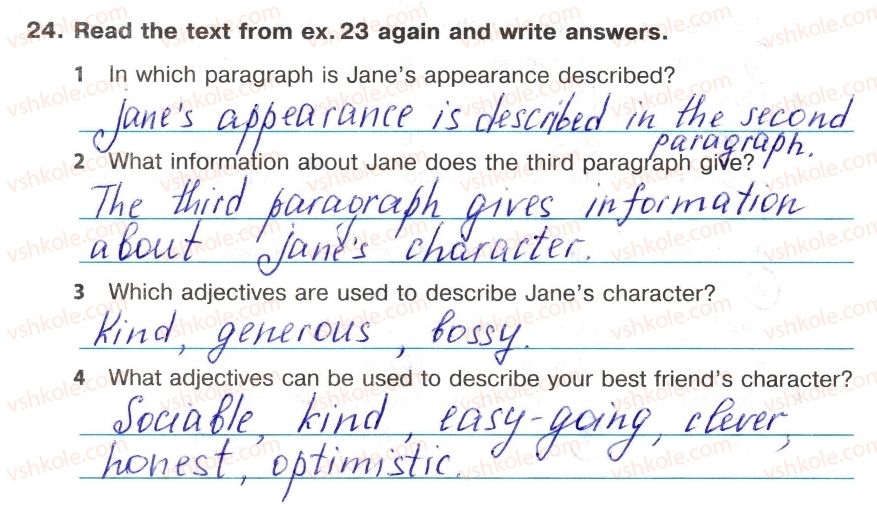 24. Read the text from ex. 23 again and write answers.
1 In which paragraph is Jane's appearance described?
Jane's appearance is described in the second
paragraph.
2 What information about Jane does the third paragraph give?
The third paragraph gives information
about Jane's character.
3 Which adjectives are used to describe Jane's character?
Kind, generous, bossy.
4 What adjectives can be used to describe your best friend's character?
Sociable, kind, easy-going, clever,
honest, optimistic.
vshkole.com